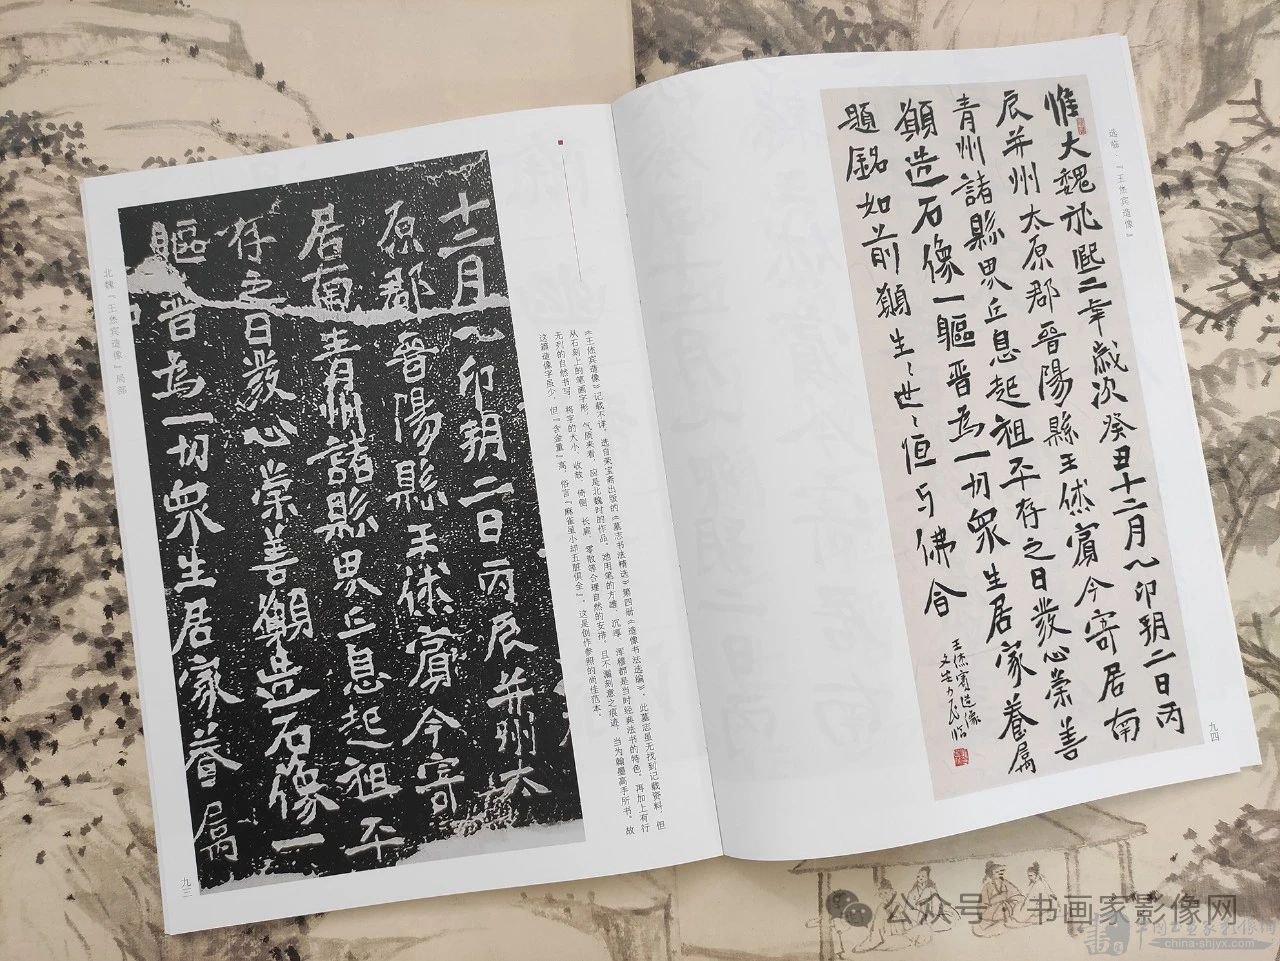 北魏『王㑣宾造像』局部
十二月乙卯朔二日丙辰并州太
原郡晋陽縣王㑣賓今寄
居南青州諸縣界丘息起祖平
存之日發心崇善願造石像一
軀晋為一切衆生居家眷属
《王㑣宾造像》记载不详，选自荣宝斋出版的《墓志书法精选》第四册《造像书法选编》。此墓志虽无找到记载资料，但
从石刻上的笔画字形、气质来看，应是北魏时的作品。她用笔的方雄、沉厚、浑穆都是当时经典法书的特色，再加上有行
无列的自然书写，将字的大小、收放、倚侧、长扁、零散等合理自然的安排，且不漏刻意之痕迹，当为翰墨高手所书，故
这篇造像字虽少，但『含金量』高，俗言『麻雀虽小却五脏俱全』，这是创作参照的尚佳范本。
九三
选临：『王㑣宾造像』
惟大魏熙二年歲次癸丑十二月乙卯朔二日丙
辰并州太原郡晋陽縣王㑣賓今寄居南
青州諸縣界丘息起祖平存之日發心崇善
願造石像一軀晋為一切衆生居家眷属
題銘如前願生〻世〻恒与佛會
王㑣賓造像
九四
公众号·书画家影像网
中国书画家影像网
china-shjyx.com